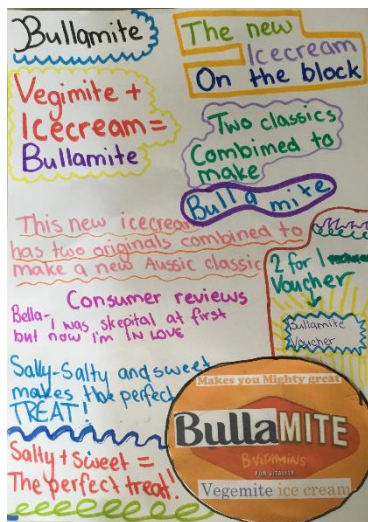 Bullamite
The new
Icecream
On the block
Vegimite +
Icecream =
Bullamite
Two classics
Combimed to
make
Bulla mite
This new icecream
has two originals combined to
make a new Aussic classic
2 for 1
Voucher
Bullamite
Voucher
Consumer reviews
Bella- I was skepital at first
but now I'm IN LOVE
Sally-Salty and sweet
makes the perfect
TREAT!
Salty + sweet =
The perfect treat!
Makes you Mighty great
BullaMITE
B VITAMINS
FOR VITALITY
Vegemite ice cream